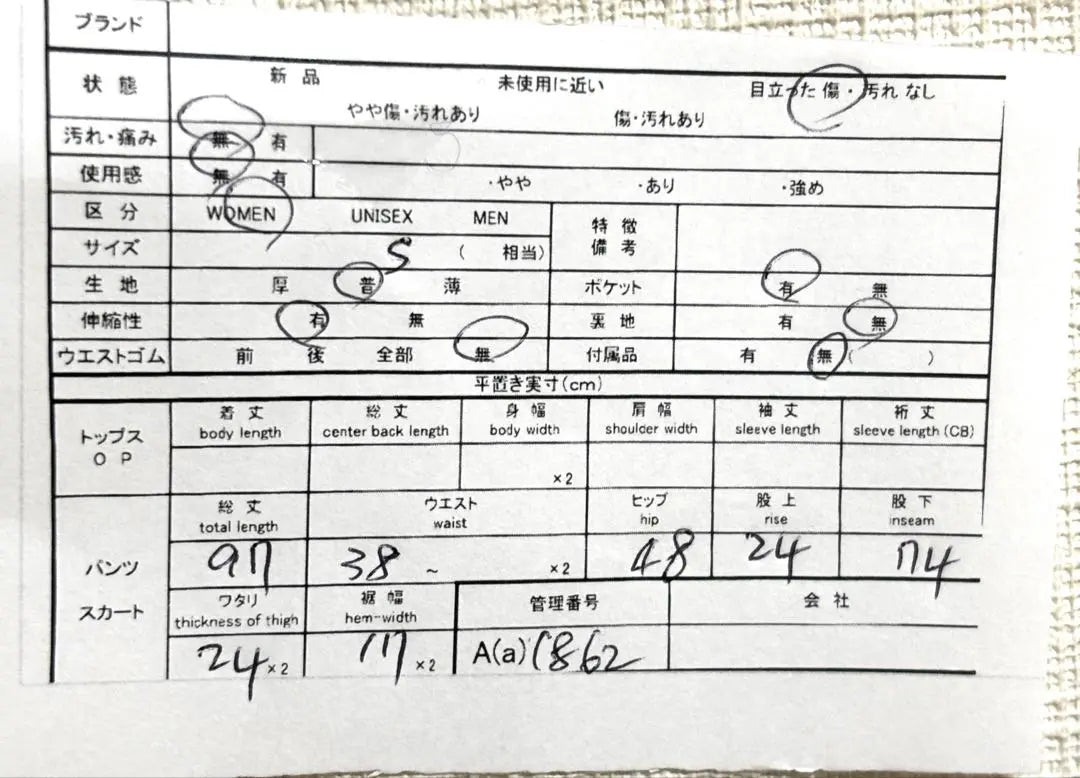 ブランド
状態 新品 未使用に近い 目立った傷・汚れなし
やや傷・汚れあり 傷・汚れあり
汚れ・痛み 無 有
使用感 無 有 ・やや ・あり ・強め
区分 WOMEN UNISEX MEN 特徴
備考
サイズ S ( 相当)
生地 厚 普 薄 ポケット 有 無
伸縮性 有 無 裏地 有 無
ウエストゴム 前 後 全部 無 付属品 有 無 ( )
平置き実寸(cm)
トップス
OP
着丈 総丈 身幅 肩幅 袖丈 裄丈
body length center back length body width shoulder width sleeve length sleeve length (CB)
×2
パンツ
スカート
総丈 ウエスト ヒップ 股上 股下
total length waist hip rise inseam
97 38 ~ ×2 48 24 74
ワタリ 裾幅 管理番号 会社
thickness of thigh hem-width
24 ×2 17 ×2 A(a) 1862